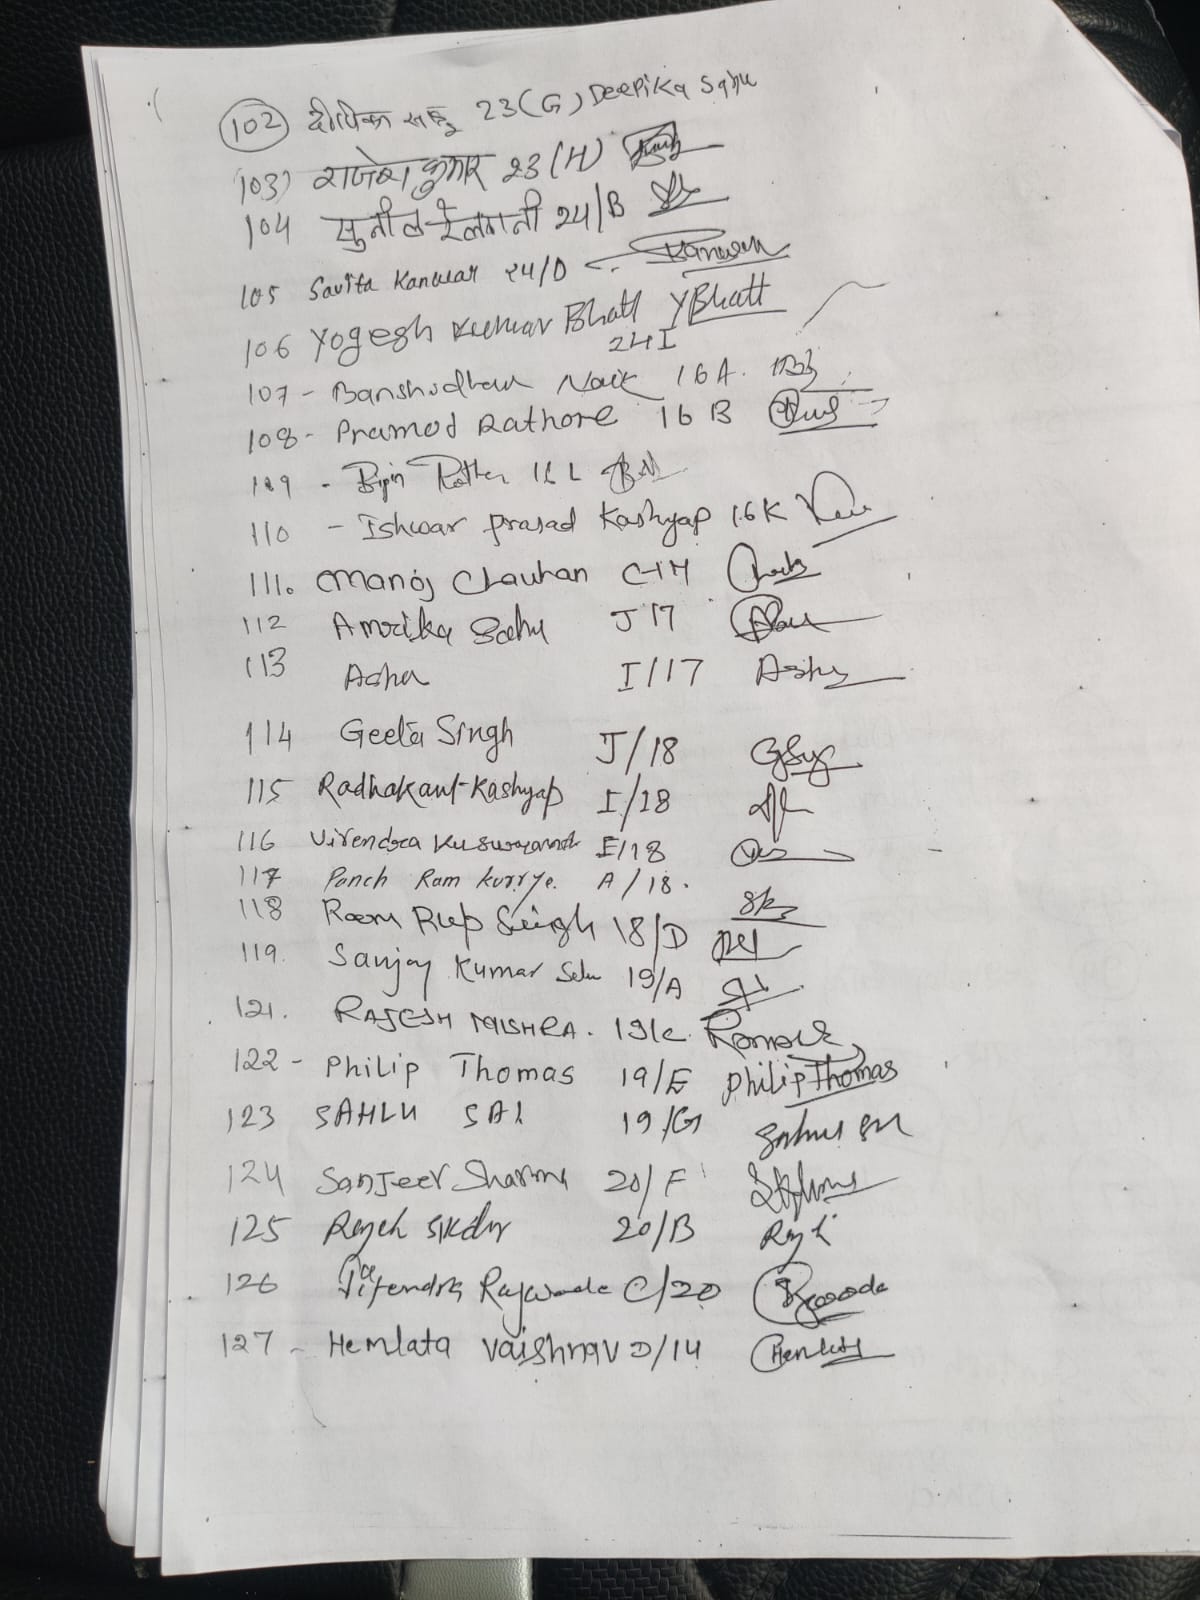 102 दीपिका साहू 23(G) Deepika Sahu
103) राजेश कुमार 23(H)
104 सुनील रेलवानी 24/B
105 Savita Kanwar 24/D Kanwar
106 Yogesh Kumar Bhatt YBhatt
24I
107 - Banshidhar Naik 16A.
108 - Pramod Rathore 16 B
109 - Bipin 16 L
110 - Ishwar prasad Kashyap 16K
111. Manoj Chauhan C-17
112 Amrika Sahu J 17
113 Asha I/17 Asha
114 Geeta Singh J/18 GSingh
115 Radhakant Kashyap I/18
116 Virendra E/18
117 Panch Ram Kurrye. A/18.
118 Ram Rup Singh 18/D
119. Sanjay Kumar 19/A
121. RAJESH MISHRA. 19/C
122 - Philip Thomas 19/E Philip Thomas
123 SAHLU SAI 19/G Sahlu Sai
124 Sanjeev Sharma 20/F
125 Rajesh Sikdar 20/B
126 Jitendra Rajwade C/20
127 - Hemlata Vaishnav D/14 Hemlata